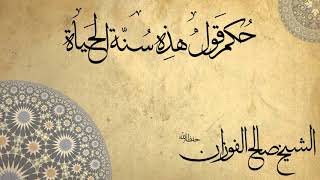 حُكم قَولُ هٰذِهِ سُنَّة الحَيَاة
الشيخ صالح الفوزان
حفظه الله